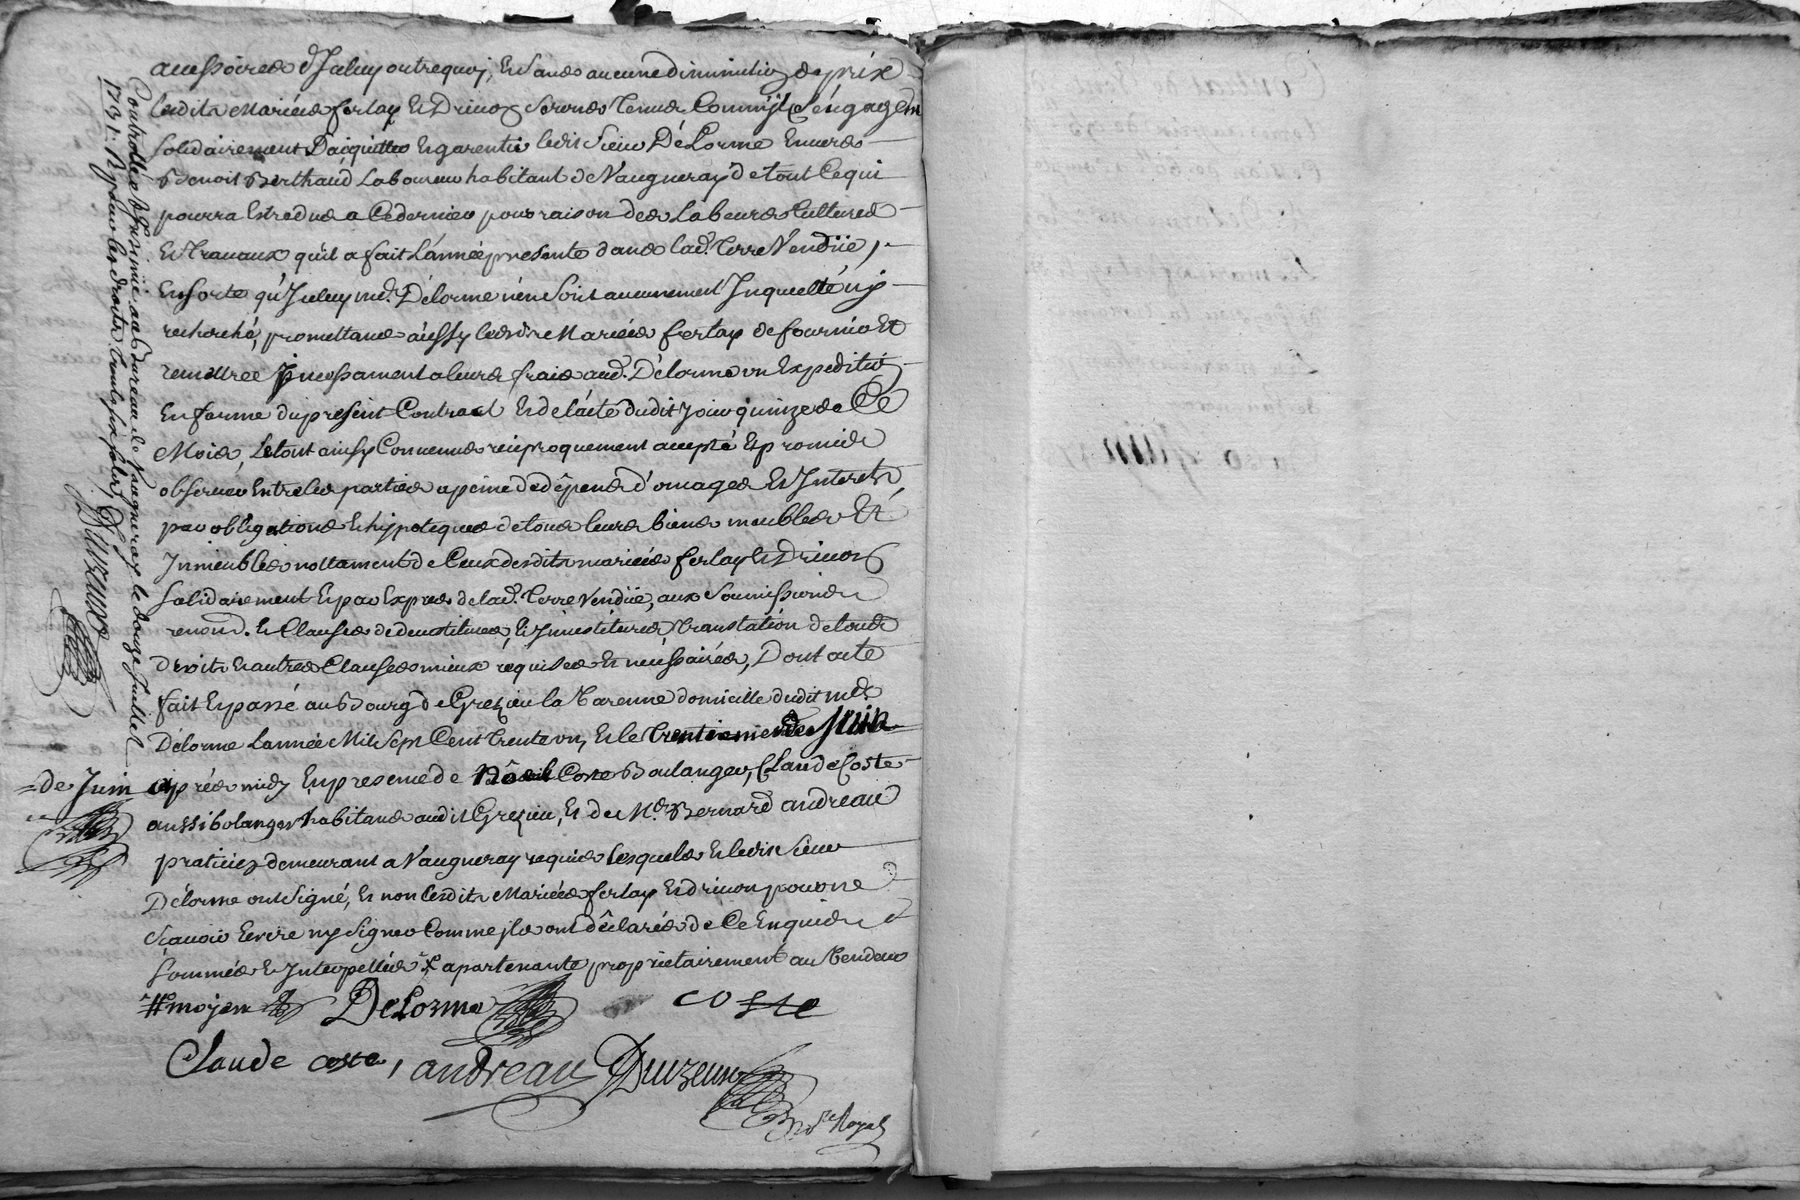 accessoires d'Iceluy outrequoy, Et Sans aucune diminution de prix
lesdits Mariés ferlay Et Drivon Seronts Tenus Comm'jls S'engagent
Solidairement D'acquitter Et garentir ledit Sieur Délorme Envers
Benoit Berthaud Laboureur habitant de Vaugneray de tout Cequi
pourra Estre due a Cedernier pour raison des Labeurs Cultures
Et Travaux qu'il a fait L'année presente dans lad. Terre Vendüe,
En sorte qu'Iceluy md. Délorme n'en Soit aucunement Inquietté ny
recherché, promettans aussy lesdits Mariés ferlay de fournir Et
remettre Incessament a leurs frais aud. Délorme un Expedition
En forme du present Contract Et de l'acte dudit Jour quinze de Ce
Mois, Le tout ainsy Convenus reciproquement accepté Et promis
observer Entre les parties a peine de dépens d'omages Et Interets,
par obligations Et hypoteques de tous leurs biens meubles Et
Immeubles nottament de Ceux desdits mariés ferlay Et Drivon
Solidairement Et par Exprés de lad. Terre Vendüe, aux Soumissions
renon. Et Clauses de devestitures, Et Investitures, translation de touts
droits Et autres Clauses mieux requises Et necessaires, Dont acte
fait Et passé au Bourg de Grezieu la Varenne domicille dudit md.
Délorme L'année Mil Sept Cent Trente un, Et le trentieme de Juin
= de Juin aprés midy En presence de Nöel Coste Boulanger, Claude Coste
aussi bolanger habitans audit Grezieu, Et de Me. Bernard andreau
praticien demeurant a Vaugneray requis Lesquels Et ledit Sieur
Délorme ont Signé, Et non lesdits Mariés ferlay Et drivon pour ne
Sçavoir Ecrire ny Signer Comme jls ont déclarés de Ce Enquis Et
Sommés Et Interpellés apartenante proprietairement au Vendeur
moyen DeLorme coste
Claude coste, andreau Druzeux
No.re Royal
Controllé et Insinué au Bureau de Vaugneray le douze Juillet
1731. R pour les droits
Druzeux